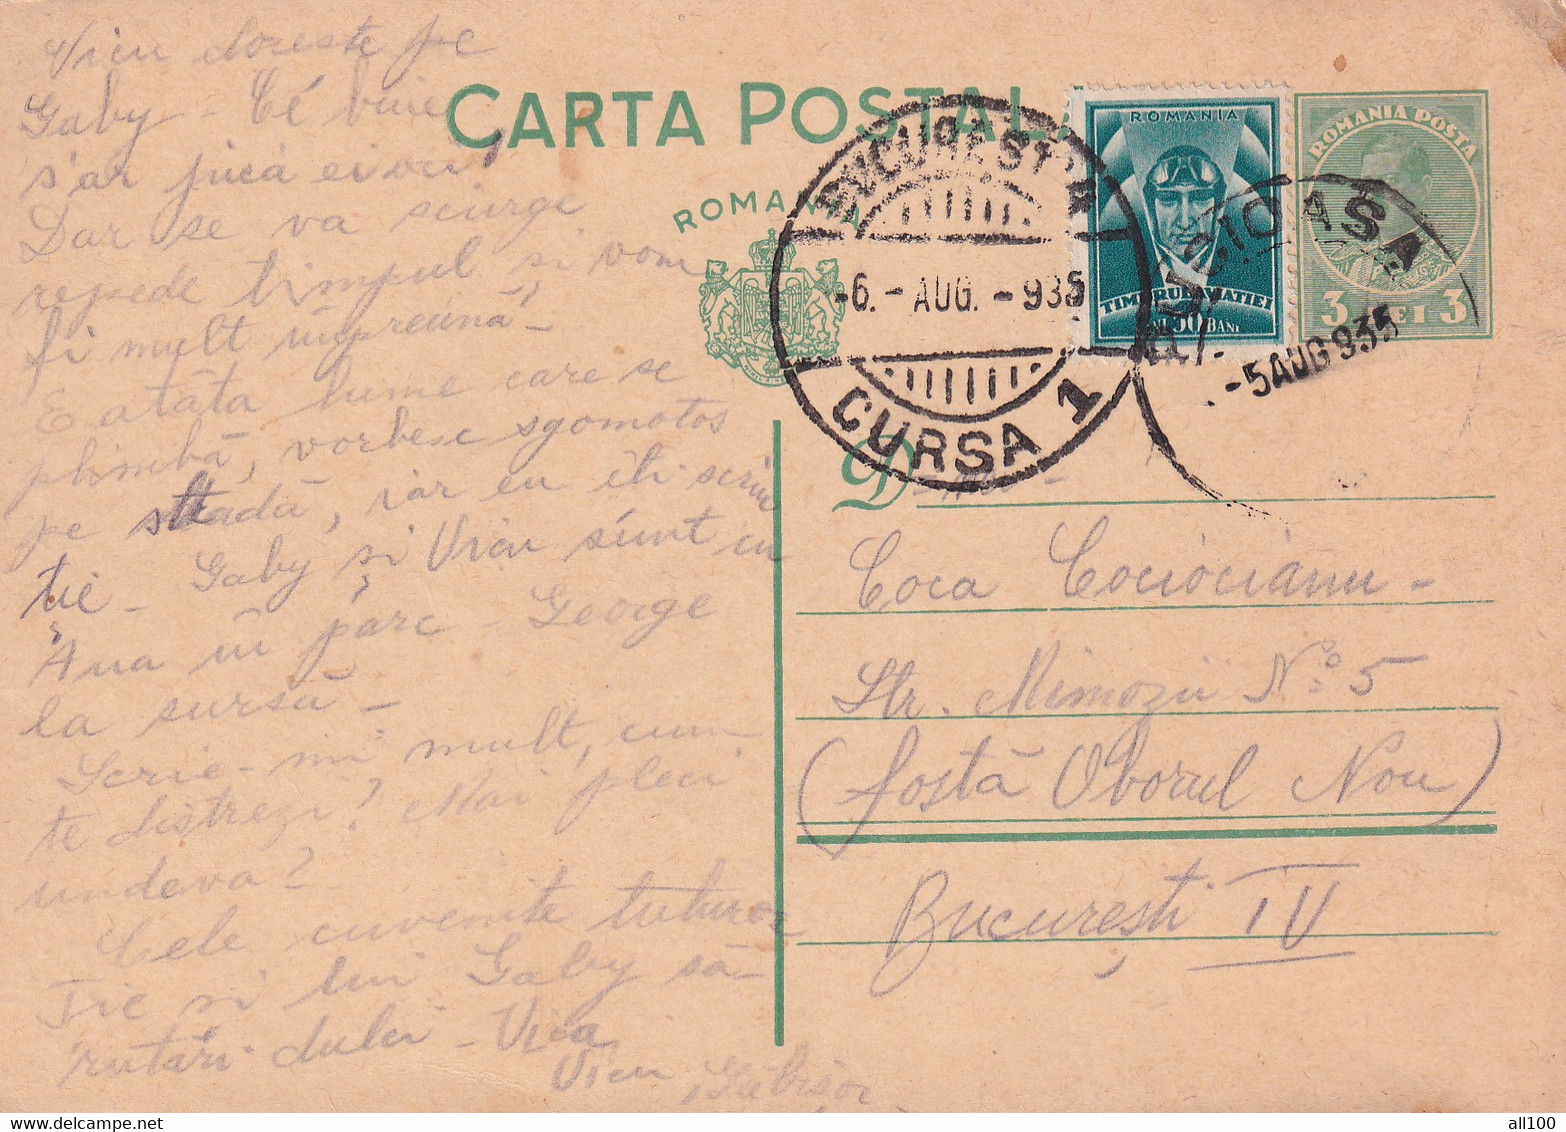 Vicu doreste pe
Gaby - Ce bine
s'ar juca ei
Dar se va scurge
repede timpul si vom
fi mult împreună -
E atâta lume care se
plimbă, vorbesc sgomotos
pe stradă, iar eu iti scriu
ție - Gaby și Vicu sunt cu
Ana în parc - George
la sursă -
Scrie-mi mult, cum
te distrezi? Mai pleci
undeva?
Cele cuvenite tuturor
Tie si lui Gaby să-
rutări dulci - Vica
Vicu Găbișor
CARTA POSTALĂ
ROMANIA
BUCURESTI
-6.- AUG. -935
CURSA 1
ROMANIA
TIMBRUL AVIATIEI
50 BANI
ROMANIA POSTA
3 LEI 3
PUCIOASA
-5 AUG 935
D
Coca Cociocianu -
Str. Mimozii No. 5
(fostă Oborul Nou)
București IV
all100